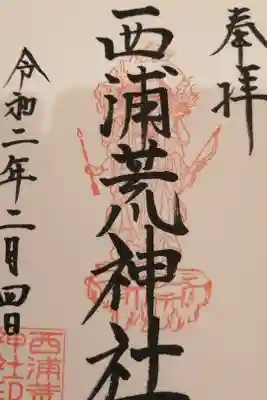 奉拝
西浦荒神社
令和二年二月四日
西浦荒
神社印